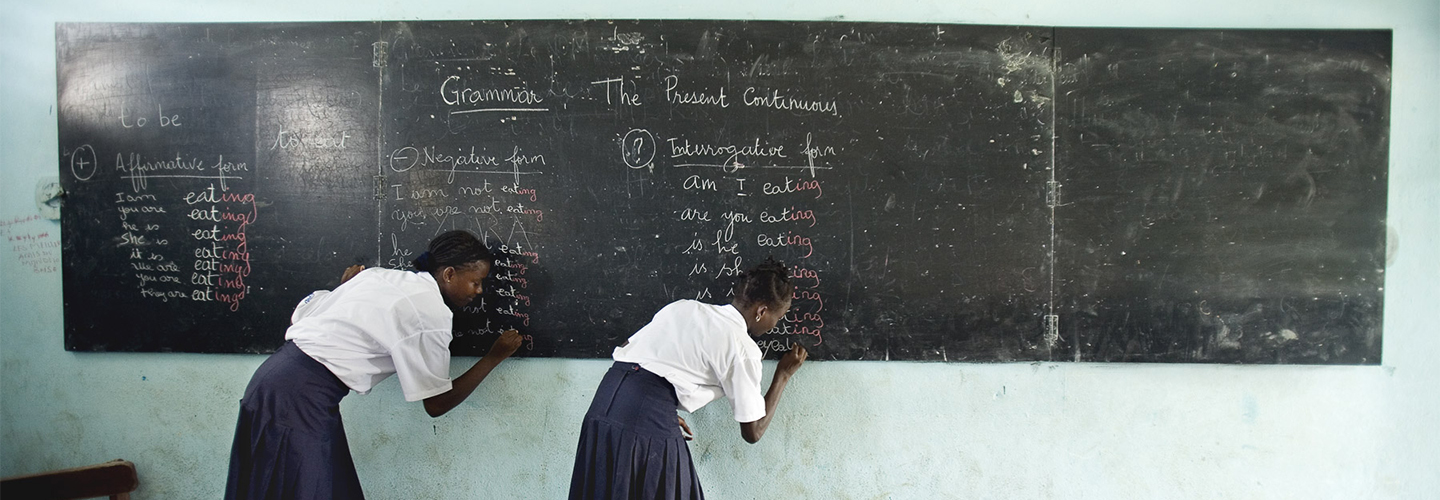 Grammar The Present Continuous
to be
to eat
+ Affirmative form
I am eating
you are eating
he is eating
she is eating
it is eating
We are eating
you are eating
they are eating
- Negative form
I am not eating
you are not eating
he eating
She eating
eating
eating
not eating
not
? Interrogative form
am I eating
are you eating
is he eating
is sh eating
is eating
eating
eating